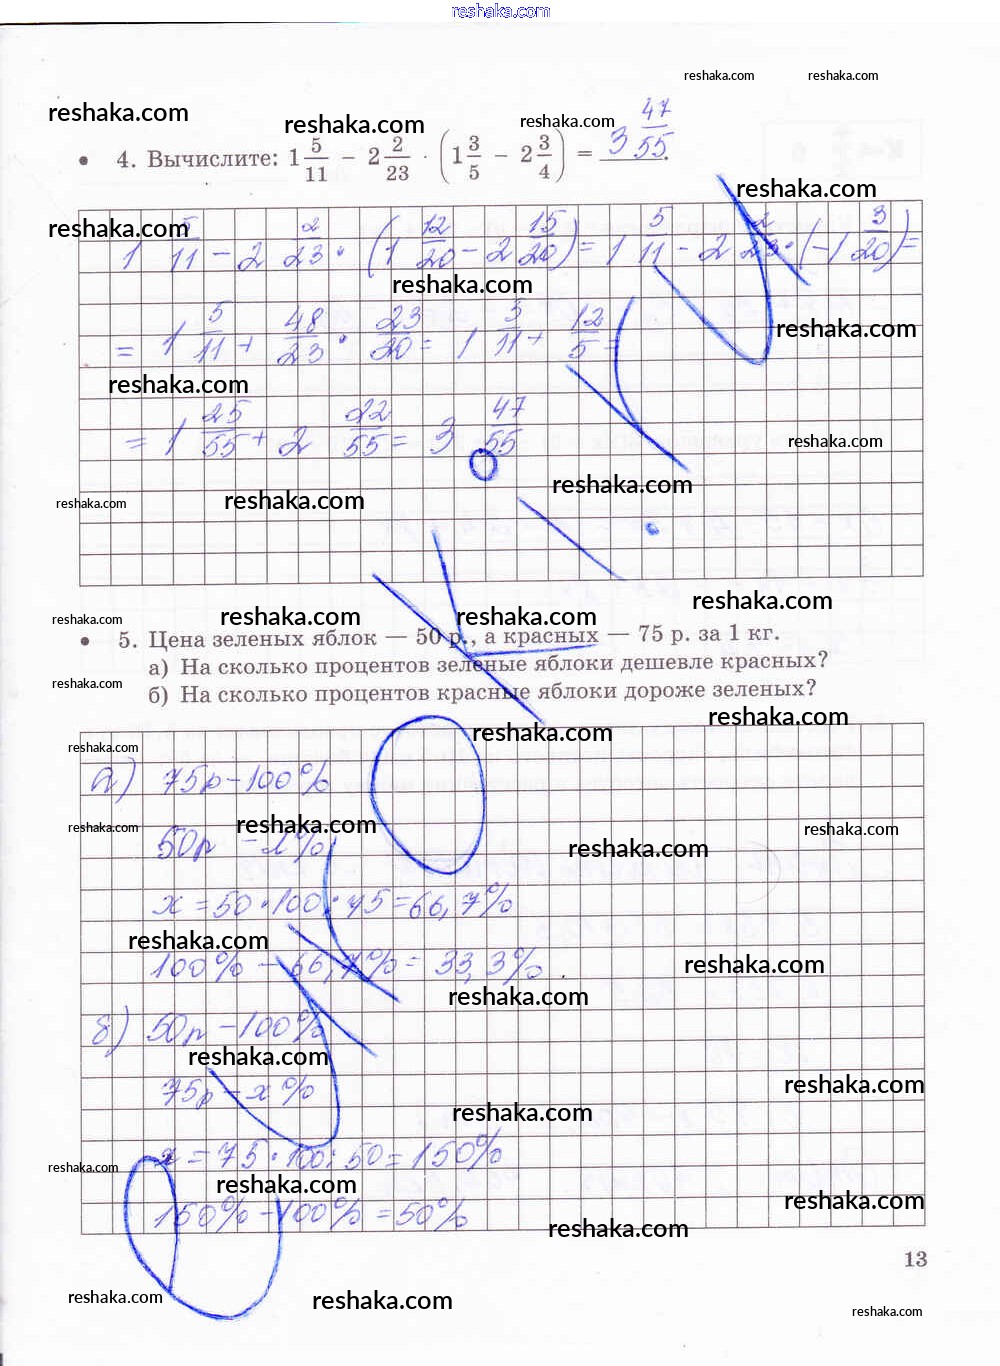 reshaka.com
reshaka.com reshaka.com
reshaka.com reshaka.com reshaka.com
• 4. Вычислите: 1 5/11 − 2 2/23 · (1 3/5 − 2 3/4) = 3 47/55.
reshaka.com
reshaka.com
1 5/11 − 2 2/23 · (1 12/20 − 2 15/20) = 1 5/11 − 2 2/23 · (−1 3/20) =
reshaka.com
reshaka.com
= 1 5/11 + 48/23 · 23/20 = 1 3/11 + 12/5 =
reshaka.com
= 1 25/55 + 2 22/55 = 3 47/55
reshaka.com
reshaka.com
reshaka.com reshaka.com
reshaka.com
reshaka.com reshaka.com reshaka.com
• 5. Цена зеленых яблок — 50 р., а красных — 75 р. за 1 кг.
а) На сколько процентов зеленые яблоки дешевле красных?
reshaka.com
б) На сколько процентов красные яблоки дороже зеленых?
reshaka.com
reshaka.com
reshaka.com
а) 75р − 100%
reshaka.com reshaka.com reshaka.com
50р − х%
reshaka.com
х = 50 · 100 : 75 = 66,7%
reshaka.com
100% − 66,7% = 33,3%.
reshaka.com
reshaka.com
б) 50р − 100%
reshaka.com
75р − х%
reshaka.com
reshaka.com
х = 75 · 100 : 50 = 150%
reshaka.com
reshaka.com
reshaka.com
150% − 100% = 50%
reshaka.com
13
reshaka.com reshaka.com
reshaka.com